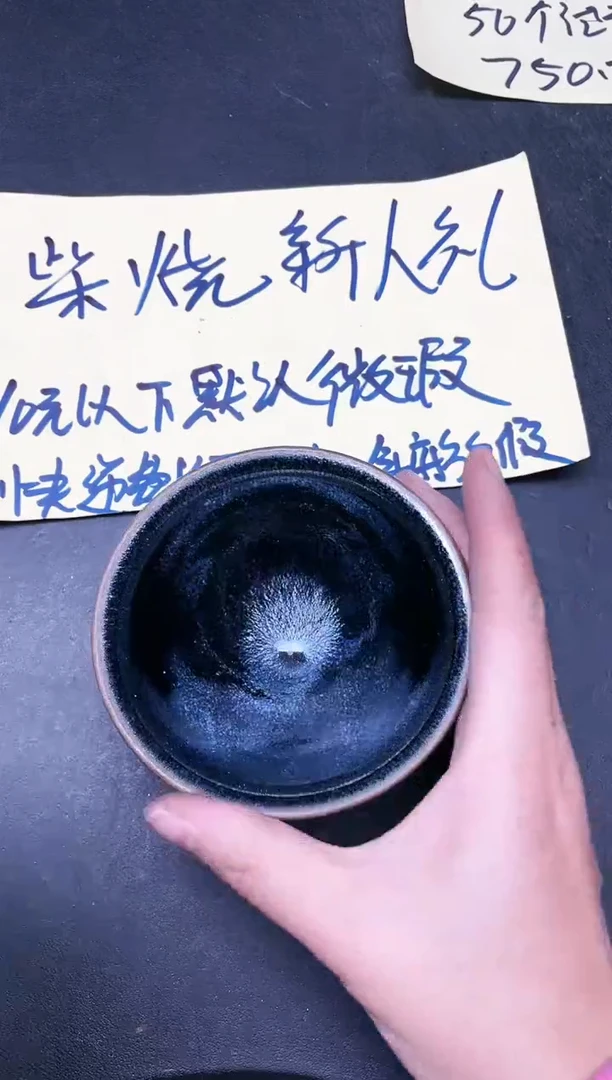 50个
750
柴烧新人礼
10元以下默认微瑕
快递